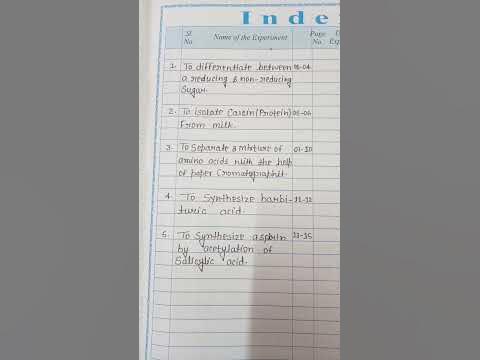 Inde
Sl. No.
Name of the Experiment
Page No.
Exp
1. To differentiate between 01-04
a reducing & non-reducing
Sugar.
2. To isolate Casein (Protein) 05-06
From milk.
3. To Separate a mixture of 07-10
amino acids with the help
of paper Cromatographit.
4. To Synthesize barbi- 11-12
turic acid.
5. To Synthesize aspirin 13-15
by acetylation of
Salicylic acid.